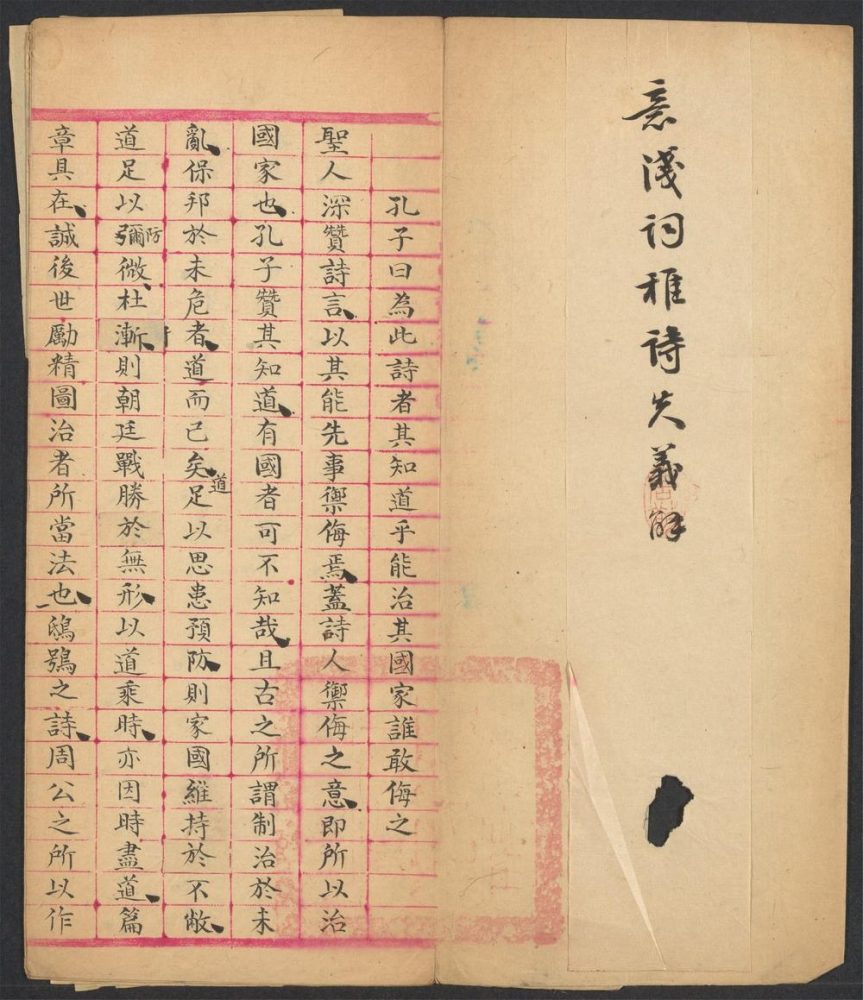 意淺詞稚詩失義解
孔子曰為此詩者其知道乎能治其國家誰敢侮之
聖人深贊詩言以其能先事禦侮焉蓋詩人禦侮之意即所以治
國家也孔子贊其知道有國者可不知哉且古之所謂制治於未
亂保邦於未危者道而已矣道足以思患預防則家國維持於不敝
道足以防彌微杜漸則朝廷戰勝於無形以道乘時亦因時盡道篇
章具在誠後世勵精圖治者所當法也鴟鴞之詩周公之所以作